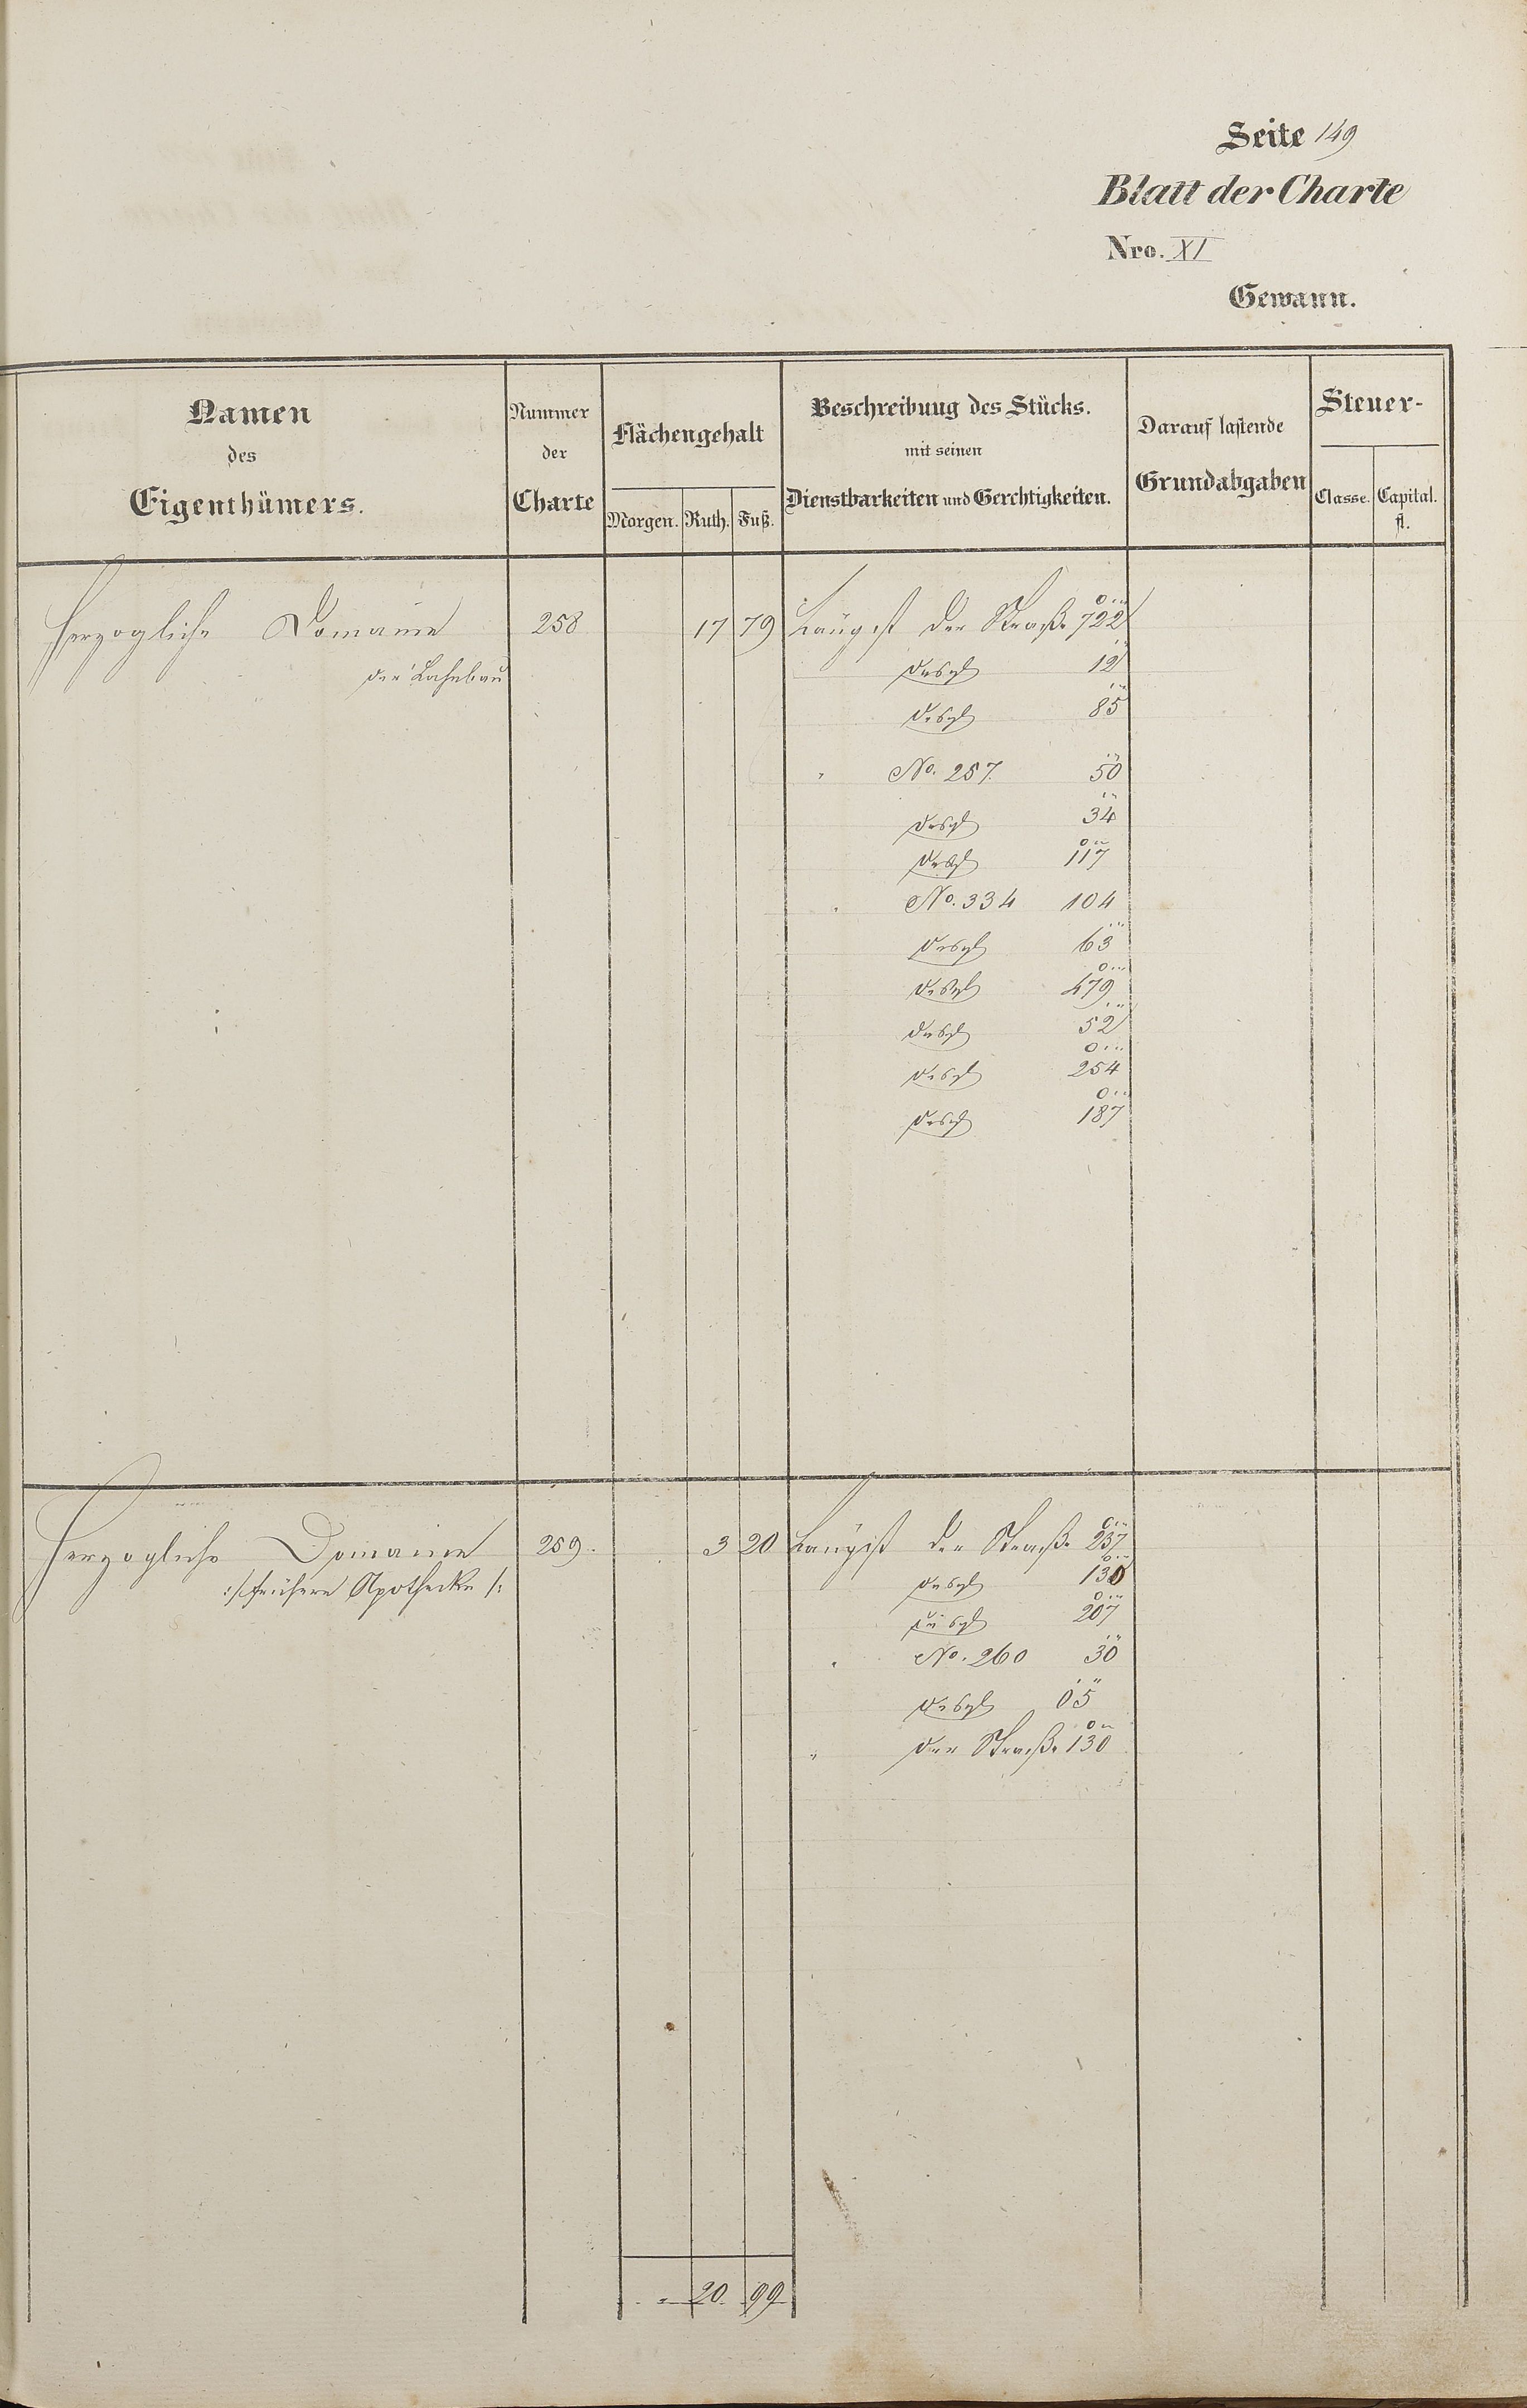 Seite 149
Blatt der Charte
Nro. XI
Gewann.
Namen des Eigenthümers.
Nummer der Charte
Flächengehalt
Morgen. Ruth. Fuß.
Beschreibung des Stücks.
mit seinen
Dienstbarkeiten und Gerchtigkeiten.
Darauf lastende
Grundabgaben
Steuer-
Classe. Capital. fl.
Herzogliche Domaine 258 17 79 Längst der Straße 722
der Lahnbau desgl 12
desgl 85
" No. 257. 50
desgl 34
desgl 117
" No. 334 104
desgl 63
desgl 479
desgl 52
desgl 254
desgl 187
Herzogliche Domaine 259. 3 20 Längst der Straße 237
:/: frühere Apothecke /: desgl 130
desgl 207
" No. 260 30
desgl 05
" der Straße 130
" 20. 99